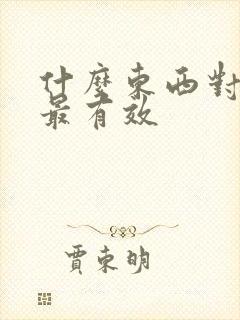 什麼東西對
最有效
賈東明